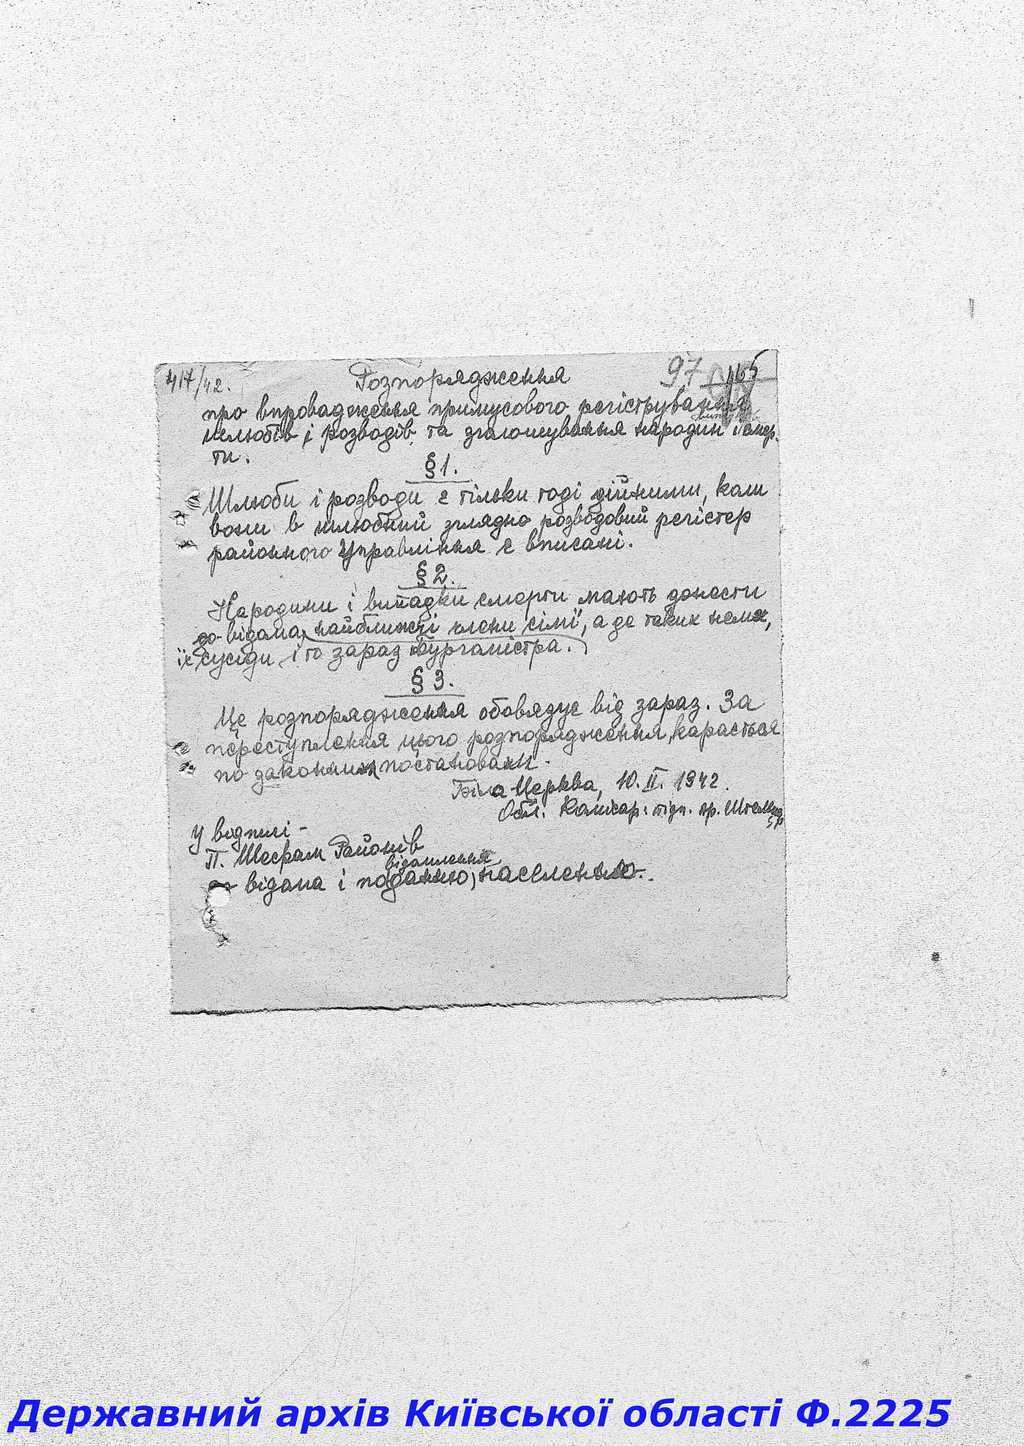 417/42. Розпорядження 97
про впровадження примусового регістрування
шлюбів і розводів та зголошування народин і смер-
ти.
§ 1.
Шлюби і розводи є тільки тоді дійними, коли
вони в шлюбний зглядно розводовий регістер
районного Управління є вписані.
§ 2.
Народини і випадки смерти мають донести
до відома найближчі члени сімї, а де таких нема,
їх сусіди і то зараз бургамістра.
§ 3.
Це розпорядження обовязує від зараз. За
переступлення цього розпорядження, карається
по законних постановах.
Біла Церква, 10. II. 1942.
Обл. Комісар: підп. др. Штельцер
У відпилі -
П. Шефам Районів
відомлення
відома і поданню населенню.
Державний архів Київської області Ф.2225